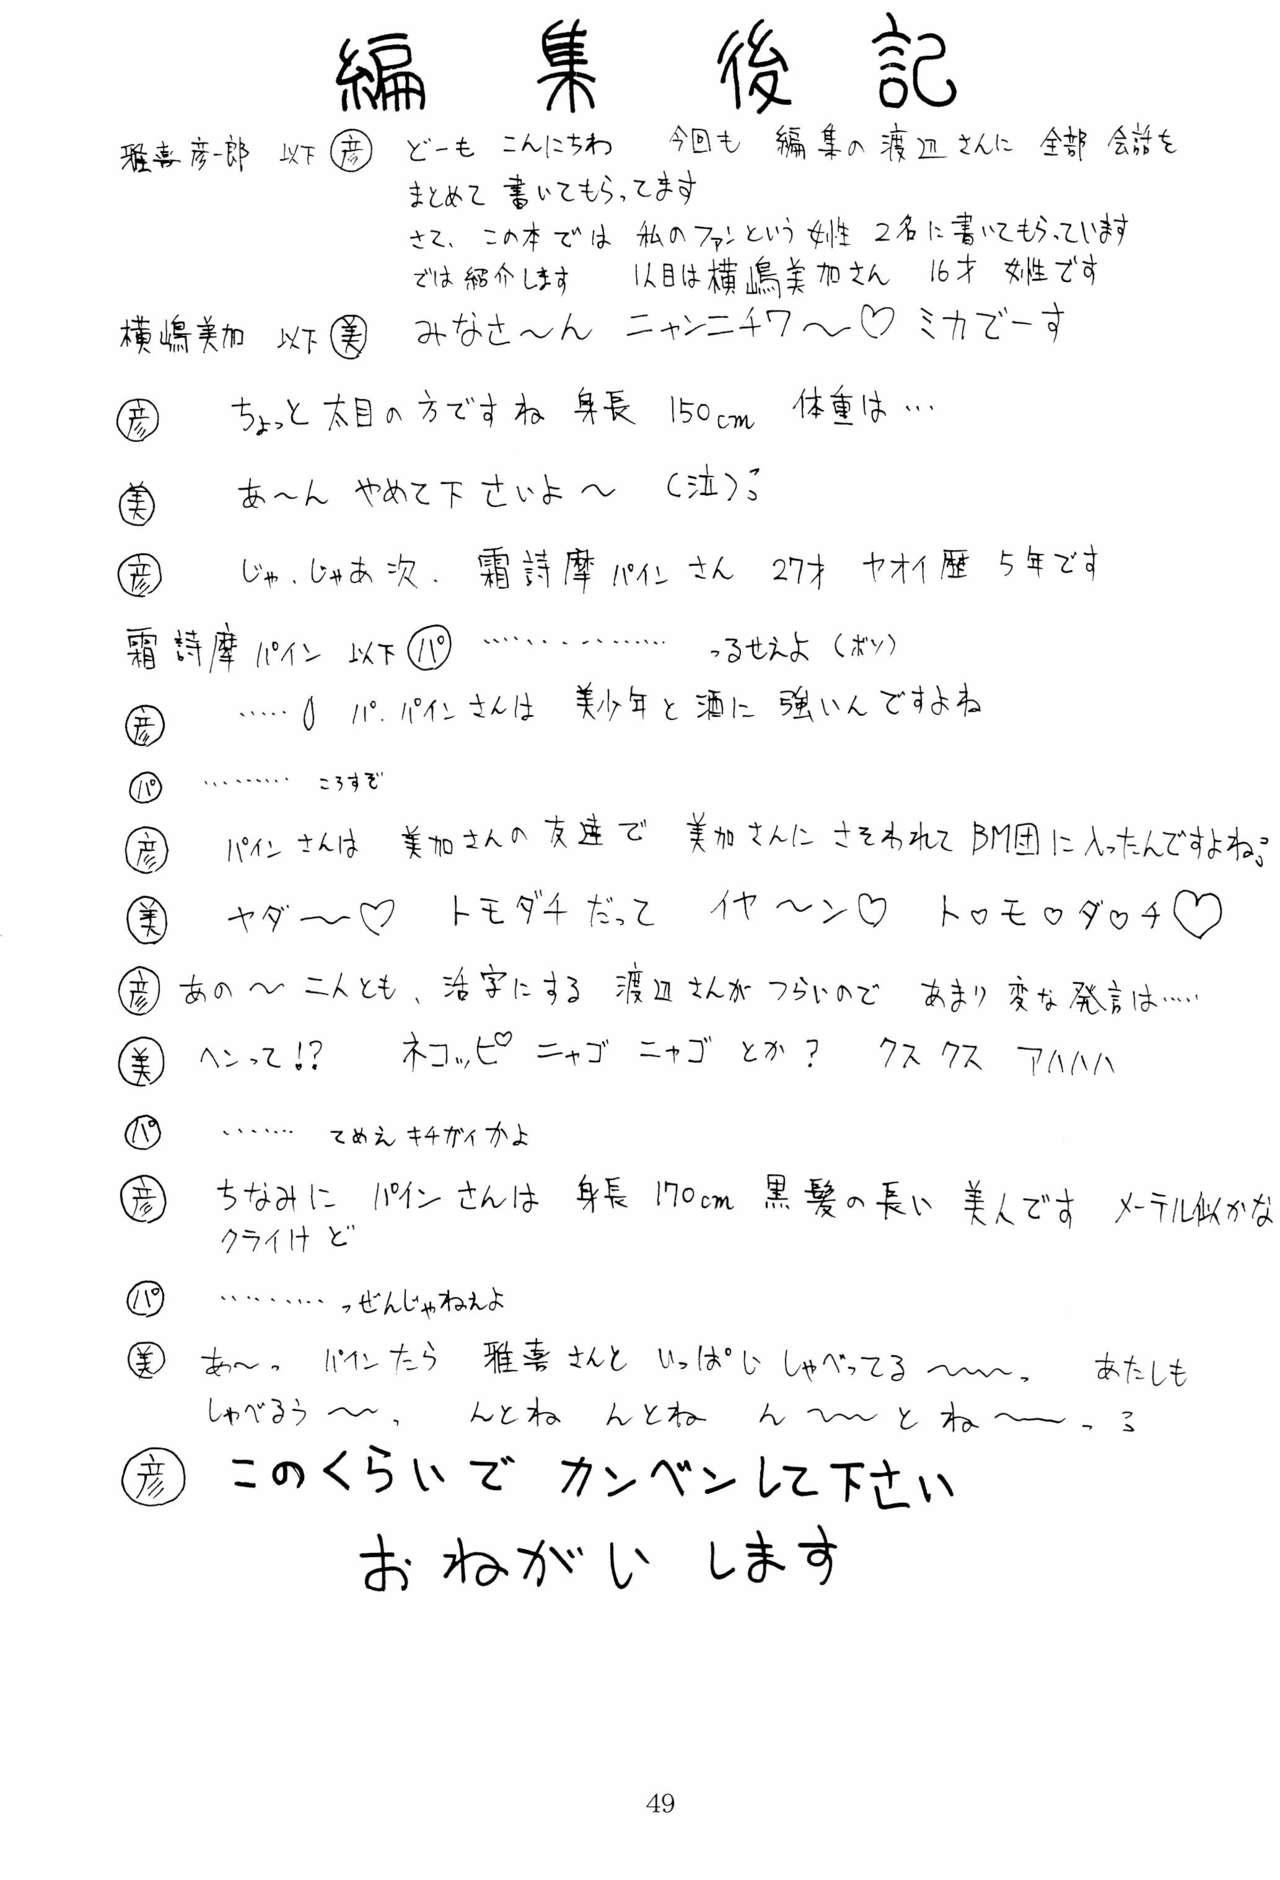 編集後記
雅喜彦一郎 以下彦 どーも こんにちわ 今回も 編集の渡辺さんに 全部 会話を
まとめて 書いてもらってます
さて、この本では 私のファンという 女性 2名に書いてもらっています
では紹介します 1人目は横嶋美加さん 16才 女性です
横嶋美加 以下美 みなさ〜ん ニャンニチワ〜♡ ミカでーす
彦 ちょっと太目の方ですね 身長 150cm 体重は…
美 あ〜ん やめて下さいよ〜 (泣)
彦 じゃ、じゃあ次、霜詩摩パインさん 27才 ヤオイ歴 5年です
霜詩摩パイン 以下パ ……………… っるせえよ (ボソ)
彦 …… パ、パインさんは 美少年と酒に 強いんですよね
パ ……… ころすぞ
彦 パインさんは 美加さんの友達で 美加さんに さそわれて BM団に入ったんですよね
美 ヤダ〜〜♡ トモダチだって イヤ〜ン♡ ト♡モ♡ダ♡チ♡
彦 あの〜 二人とも、活字にする 渡辺さんが つらいので あまり変な発言は……
美 ヘンって!? ネコッピ♡ ニャゴ ニャゴ とか? クスクス アハハハ
パ ……… てめえキチガイかよ
彦 ちなみに パインさんは 身長 170cm 黒髪の長い 美人です メーテル似かな
クライけど
パ ………… っぜんじゃねえよ
美 あ〜っ パインたら 雅喜さんと いっぱい しゃべってる〜〜〜っ あたしも
しゃべるう〜〜っ んとね んとね ん〜〜とね〜〜っ
彦 このくらいで カンベンして下さい
おねがい します
49